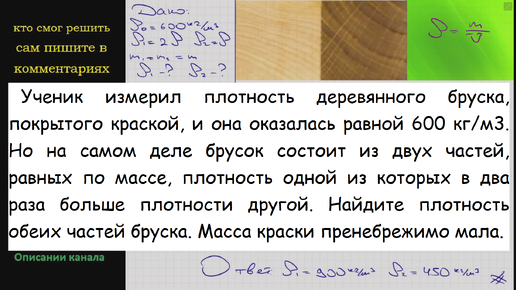 кто смог решить
сам пишите в
комментариях
Дано:
ρ₀ = 600 кг/м3
ρ₁ = 2ρ ρ₂ = ρ
m₁ = m₂ = m
ρ₁ - ? ρ₂ - ?
ρ = m/υ
Ученик измерил плотность деревянного бруска,
покрытого краской, и она оказалась равной 600 кг/м3.
Но на самом деле брусок состоит из двух частей,
равных по массе, плотность одной из которых в два
раза больше плотности другой. Найдите плотность
обеих частей бруска. Масса краски пренебрежимо мала.
Описании канала
Ответ ρ₁ = 900 кг/м3 ρ₂ = 450 кг/м3